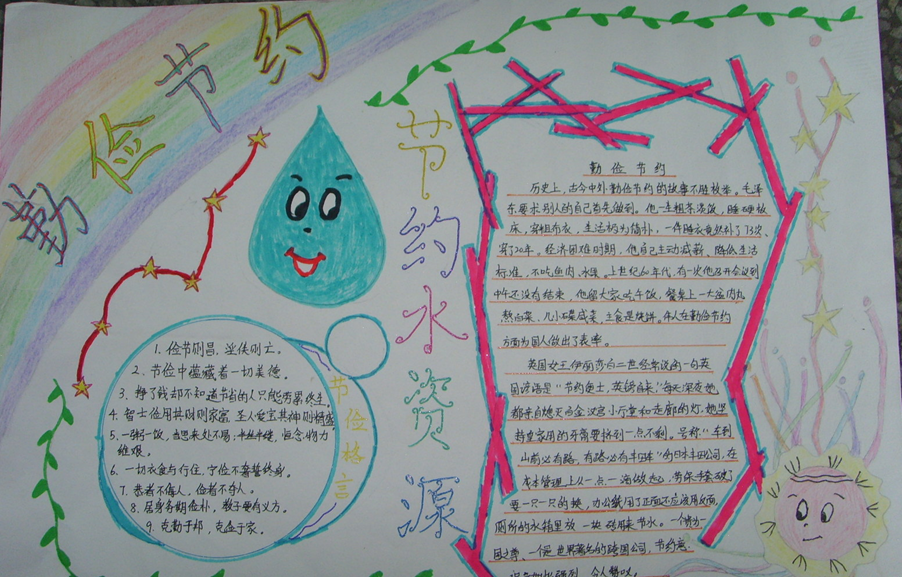 勤俭节约
节约水资源
节俭格言
1. 俭节则昌，淫佚则亡。
2. 节俭中蕴藏着一切美德。
3. 挣了钱却不知道节省的人只能劳累终生。
4. 智士俭用其财则家富 圣人爱宝其神则精盛
5. 一粥一饭，当思来处不易；半丝半缕，恒念物力
维艰。
6. 一切衣食与行住，宁俭不奢誓终身。
7. 恭者不侮人，俭者不夺人。
8. 居身务期俭朴，教子要有义方。
9. 克勤于邦，克俭于家。
勤俭节约
历史上，古今中外勤俭节约的故事不胜枚举。毛泽
东要求别人的自己首先做到。他一生粗茶淡饭，睡硬板
床，穿粗布衣，生活极为简朴，一件睡衣竟然补了73次、
穿了20年。经济困难时期，他自己主动减薪、降低生活
标准，不吃鱼肉、水果。上世纪60年代，有一次他召开会议到
中午还没有结束，他留大家吃午饭，餐桌上一大盆肉丸
熬白菜、几小碟咸菜，主食是烧饼。伟人在勤俭节约
方面为国人做出了表率。
英国女王伊丽莎白二世经常说的一句英
国谚语是“节约便士，英镑自来”，每天深夜她
都亲自熄灭白金汉宫小厅堂和走廊的灯，她坚
持皇家用的牙膏要挤到一点不剩。号称“车到
山前必有路，有路必有丰田车”的日本丰田公司，在
成本管理上从一点一滴做起，劳保手套破了
要一只一只的换，办公纸用了正面还要用反面，
厕所的水箱里放一块砖用来节水。一个贵为一
国之尊、一个是世界著名的跨国公司，节约意